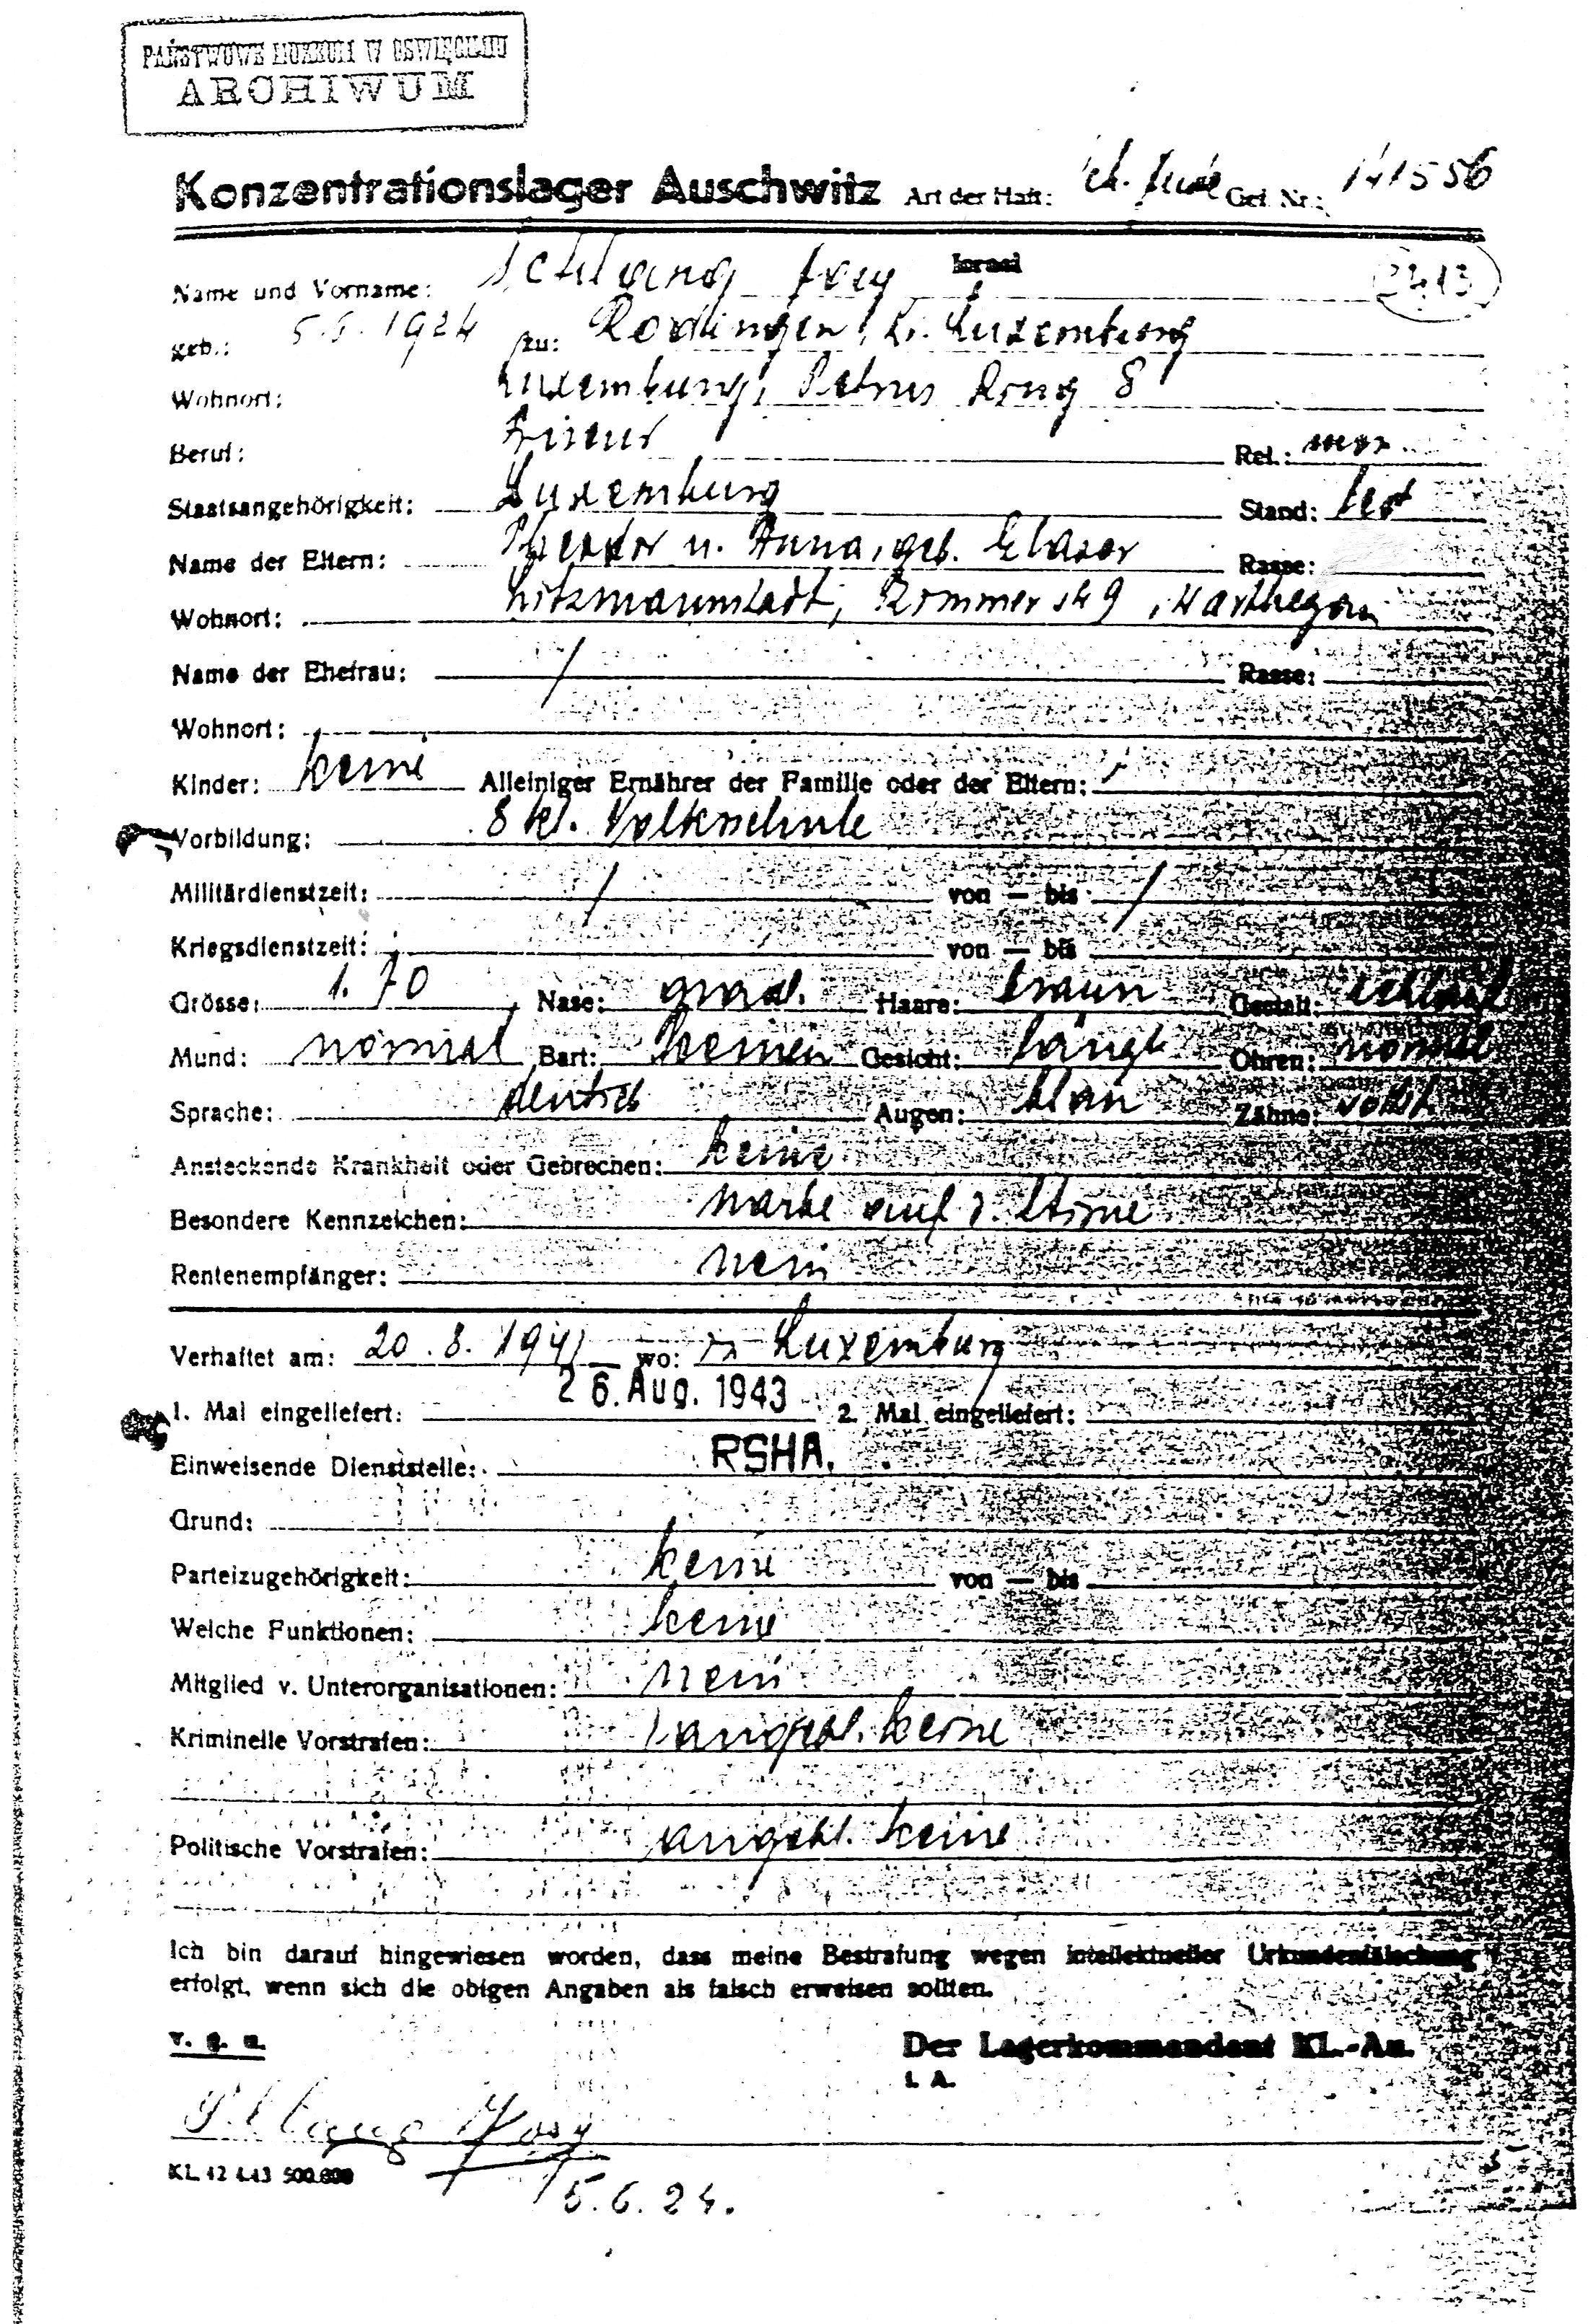 PAŃSTWOWE MUZEUM W OŚWIĘCIMIU
ARCHIWUM
Konzentrationslager Auschwitz Art der Haft: Sch. Jude Gef. Nr.: 141556
Name und Vorname: Schlang Josy Israel
2413
geb.: 5.6.1924 zu: Rodingen, Kr. Luxemburg
Wohnort: Luxemburg, Petrus Ring 8
Beruf: Friseur Rel.: mos.
Staatsangehörigkeit: Luxemburg Stand: led
Name der Eltern: u. Anna, geb. Rasse:
Wohnort: Litzmannstadt, 9, Warthegau
Name der Ehefrau: / Rasse:
Wohnort:
Kinder: keine Alleiniger Ernährer der Familie oder der Eltern: /
Vorbildung: 8 kl. Volksschule
Militärdienstzeit: / von — bis /
Kriegsdienstzeit: von — bis
Grösse: 1.70 Nase: grad. Haare: braun Gestalt: schlank
Mund: normal Bart: keinen Gesicht: längl. Ohren: normal
Sprache: deutsch Augen: blau Zähne: vollst.
Ansteckende Krankheit oder Gebrechen: keine
Besondere Kennzeichen: Narbe auf d. Stirne
Rentenempfänger: nein
Verhaftet am: 20.8.1941 wo: in Luxemburg
1. Mal eingeliefert: 26. Aug. 1943 2. Mal eingeliefert:
Einweisende Dienststelle: RSHA.
Grund:
Parteizugehörigkeit: keine von — bis
Welche Funktionen: keine
Mitglied v. Unterorganisationen: nein
Kriminelle Vorstrafen: angebl. keine
Politische Vorstrafen: angebl. keine
Ich bin darauf hingewiesen worden, dass meine Bestrafung wegen intellektueller Urkundenfälschung
erfolgt, wenn sich die obigen Angaben als falsch erweisen sollten.
v. g. u. Der Lagerkommandant KL.-Au.
i. A.
Schlang Josy
KL 42 4.43 500.000
5.6.24.